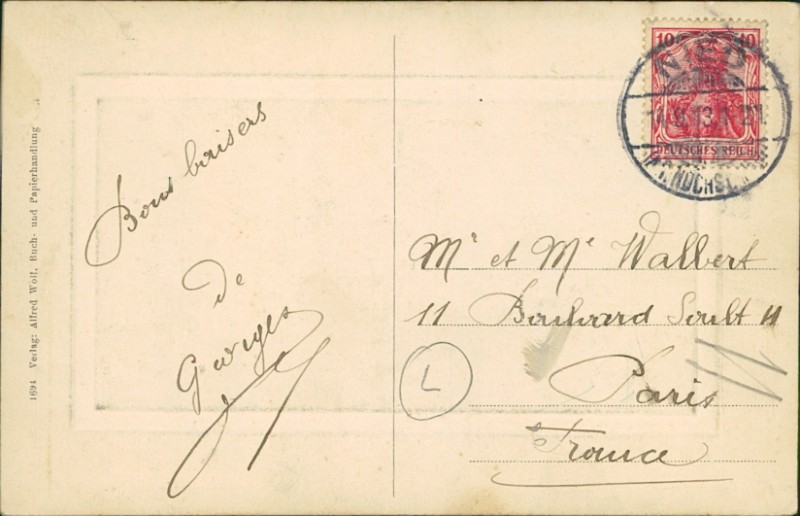 Bons baisers
de
Georges
10 10
DEUTSCHES REICH
NIED
13
HÖCHST
Mr et Me Walbert
11 Boulvard Soult 11
Paris
France
L
1694 Verlag: Alfred Wolf, Buch- und Papierhandlung